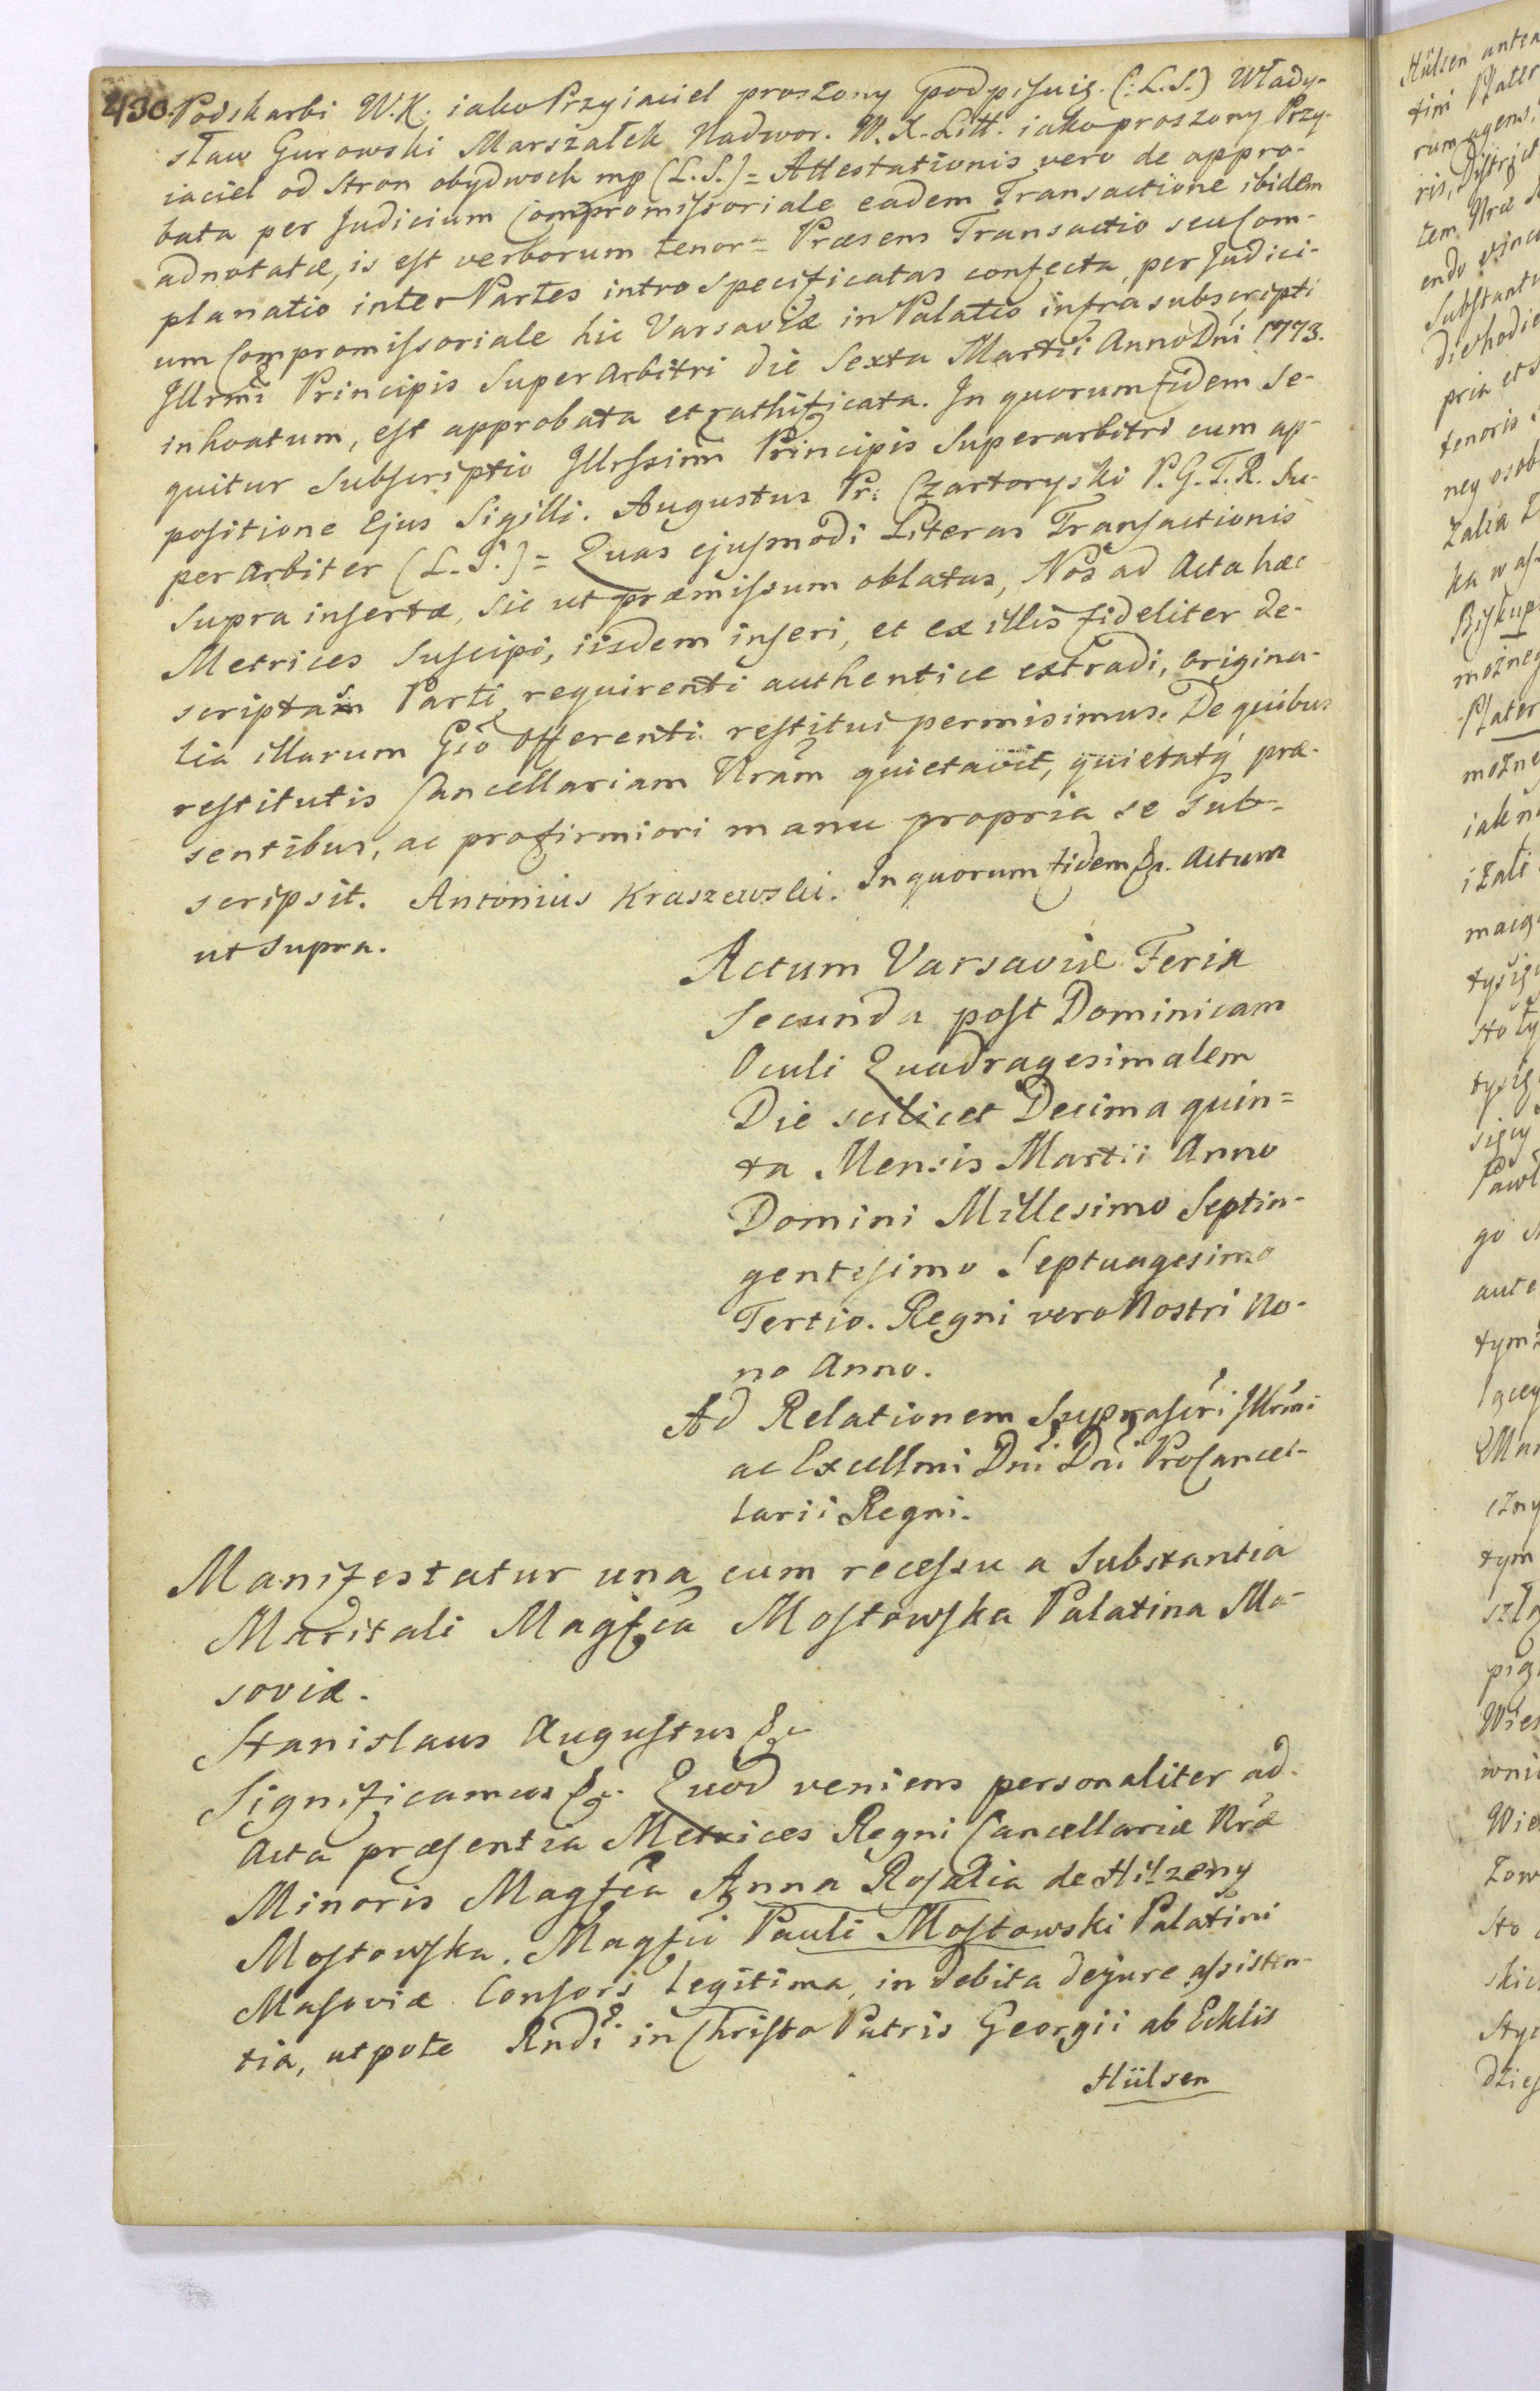 430. Podskarbi W. K. iako Przyiaciel proszony podpisuię. (: L. S.) Włady-
sław Gurowski Marszałek Nadwor. W. X. Litt. iako proszony Przy-
iaciel od stron obydwoch mp (L. S.) = Attestationis vero de appro-
bata per Judicium Compromissoriale eadem Transactione ibidem
adnotatæ, is est verborum tenor = Præsens Transactio seu Com-
planatio inter Partes intro Specificatas confecta, per Judici-
um Compromissoriale hic Varsaviæ in Palatio infra subscripti
Illrmi Principis Super Arbitri die Sexta Martii Anno Dni 1773.
inhoatum, est approbata et rathificata. In quorum fidem se-
quitur Subscriptio Illrssimi Principis Superarbitri cum ap-
positione Ejus Sigilli. Augustus Pr: Czartoryski P. G. T. R. Su-
per Arbiter (L. S.) = Quas ejusmodi Literas Transactionis
supra insertæ, sic ut præmissum oblatas, Nos ad Acta hæc
Metrices Suscipi, iisdem inseri, et ex illis fideliter de-
scriptas Parti requirenti authentice extradi, origina-
lia illarum Gso Offerenti restitui permisimus. De quibus
restitutis Cancellariam Nram quietavit, quietatq præ-
sentibus, ac pro firmiori manu propria se sub-
scripsit. Antonius Kraszewski. In quorum fidem &. Actum
ut supra.
Actum Varsaviæ Feria
Secunda post Dominicam
Oculi Quadragesimalem
Die scilicet Decima quin=
ta Mensis Martii Anno
Domini Millesimo Septin-
gentesimo Septuagesimo
Tertio. Regni vero Nostri No-
no Anno.
Ad Relationem Suprascri Illrmi
ac Excellmi Dni Dni ProCancel-
larii Regni.
Manifestatur una cum recessu a Substantia
Maritali Magfca Mostowska Palatina Ma-
soviæ.
Stanislaus Augustus &
Significamus &. Quod veniens personaliter ad
Acta præsentia Metrices Regni Cancellariæ Nræ
Minoris Magfca Anna Rosalia de Hilzeny
Mostowska. Magfci Pauli Mostowski Palatini
Masoviæ Consors legitima, in debita de jure assisten-
tia, utpote Rndi in Christo Patris Georgii ab Ecklis
Hülsen